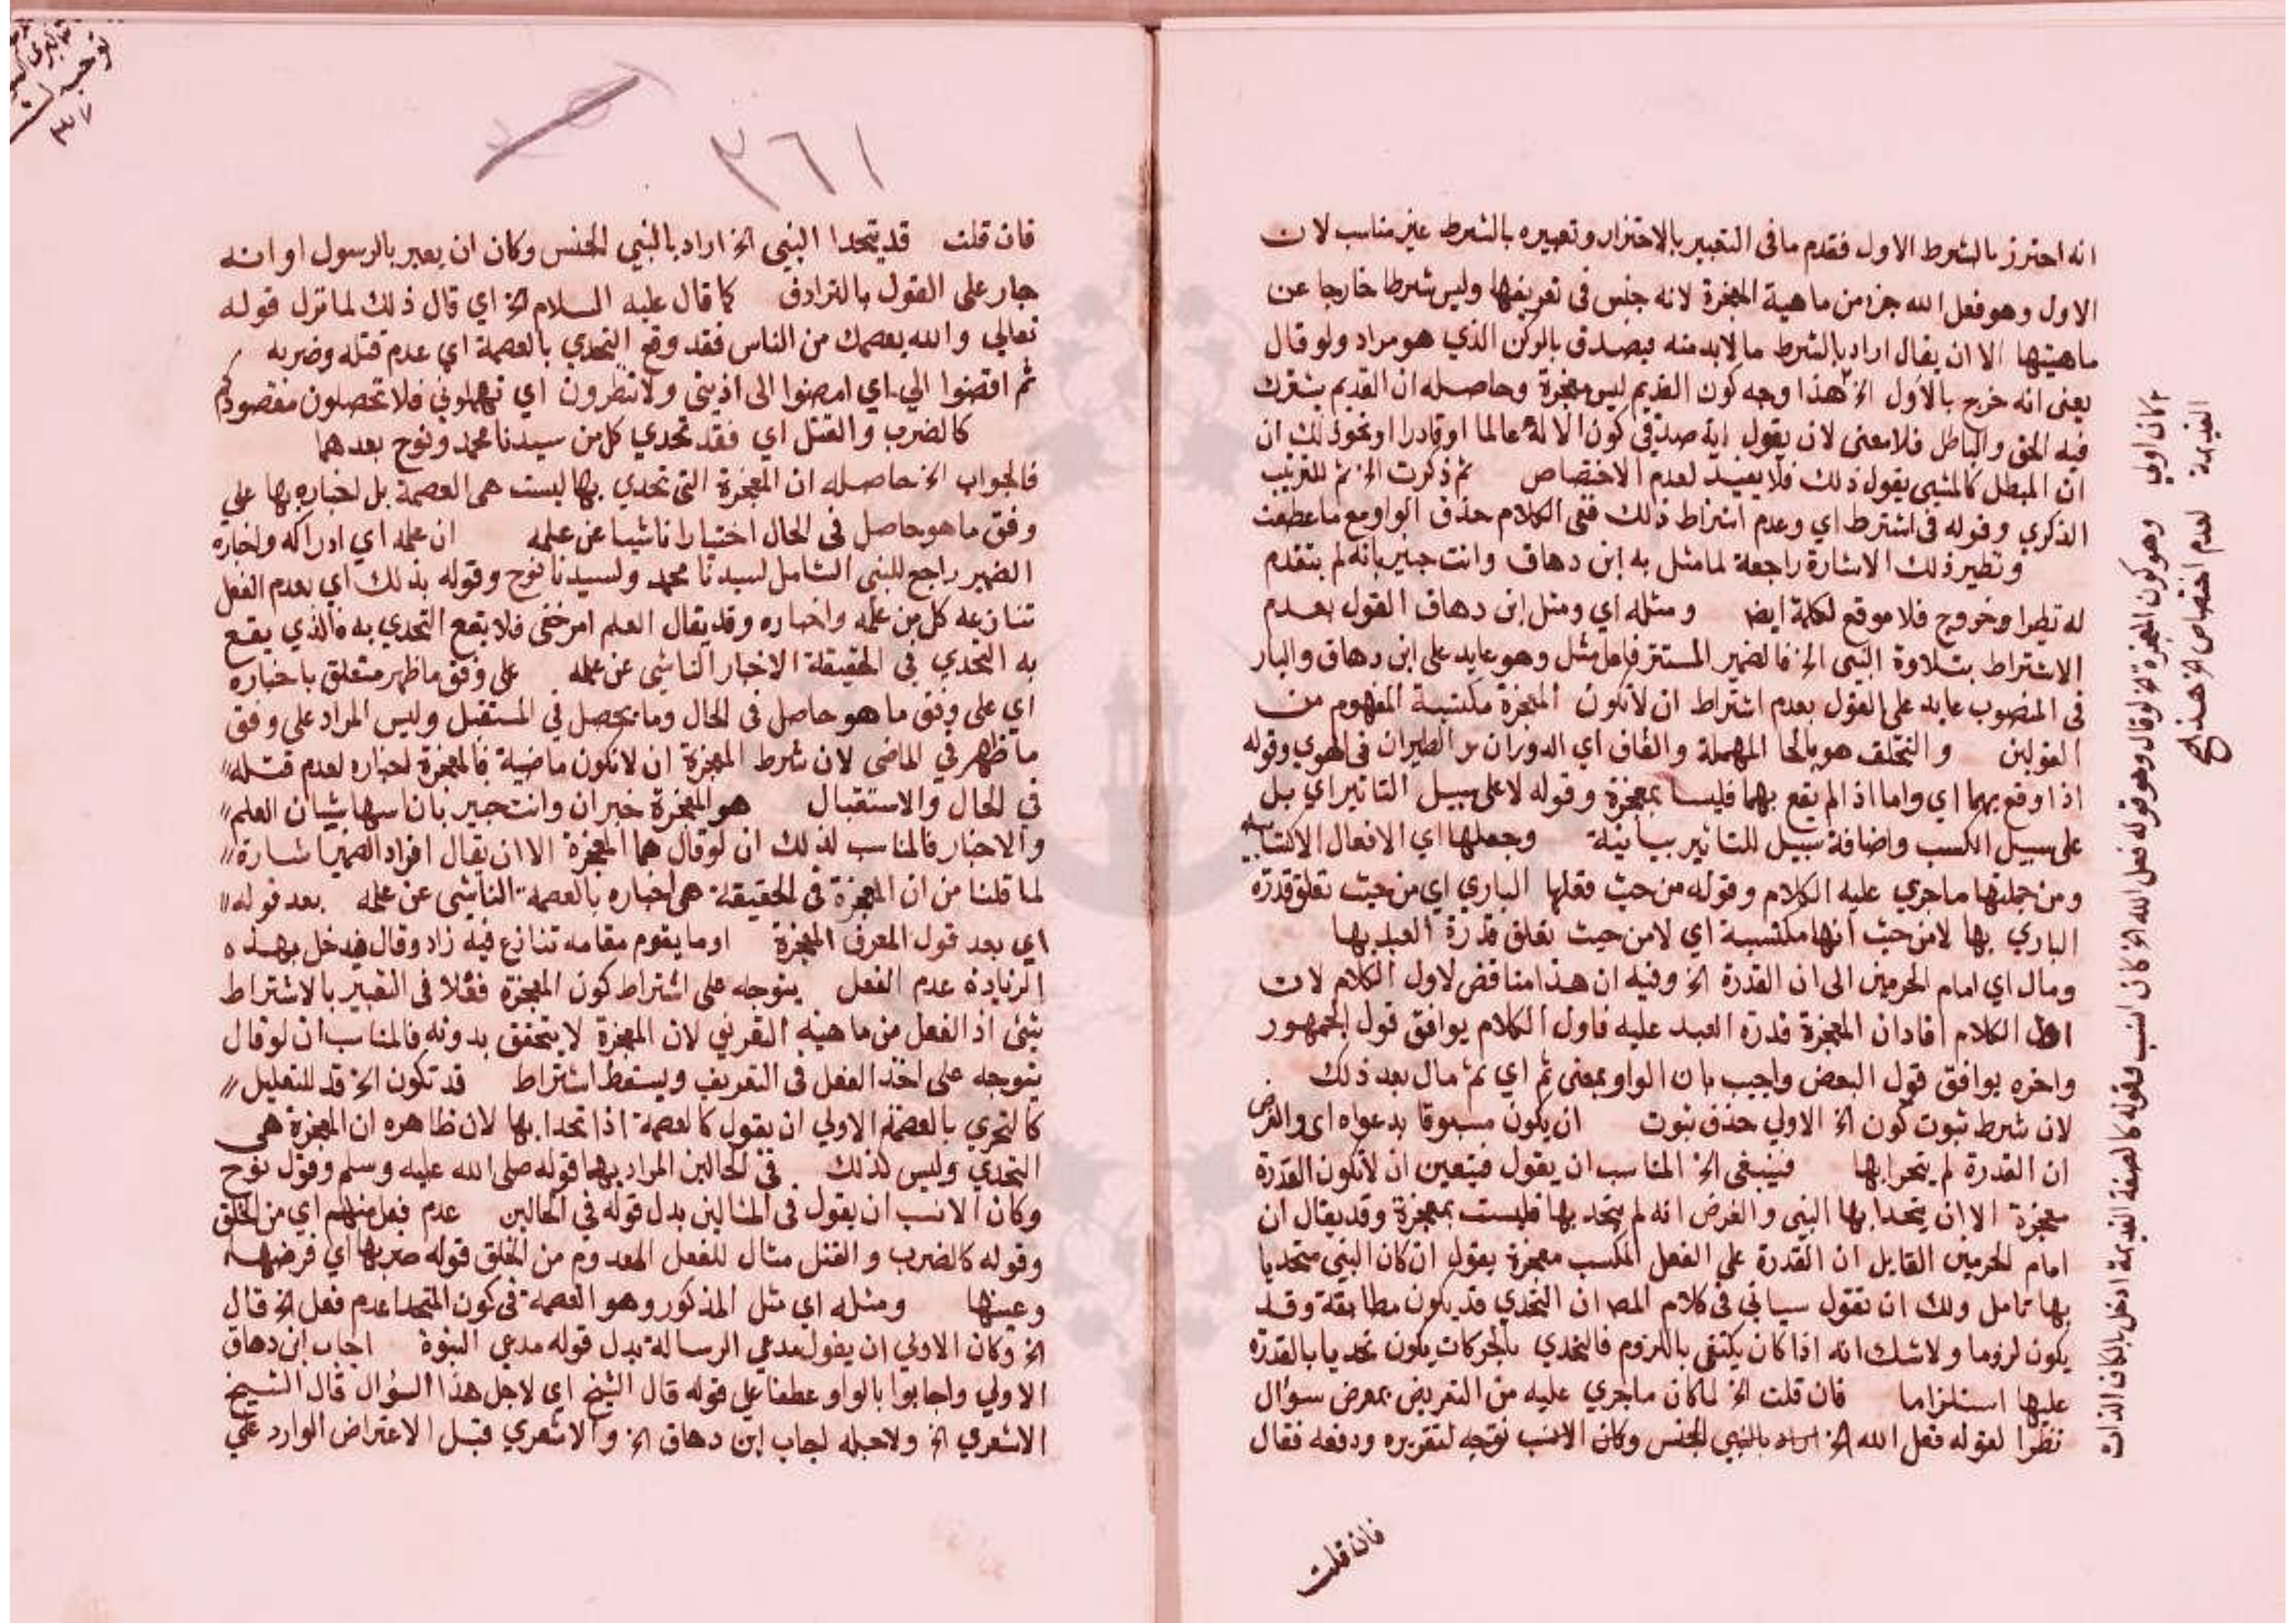 انه احترز بالشرط الاول فقدم ما فى التعبير بالاحتراز وتعبيره بالشرط غير مناسب لان
الاول وهو فعل الله جزء من ماهية المعجزة لانه جنس فى تعريفها وليس شرطا خارجا عن
ماهيتها الا ان يقال اراد بالشرط ما لابد منه فيصدق بالركن الذي هو مراد ولو قال
يعنى انه خرج بالاول الخ هذا وجه كون القديم ليس معجزة وحاصله ان القديم يشترك
فيه المحق والباطل فلا معنى لان يقول اية صدقي كون الاله عالما او قادرا او نحو ذلك ان
ان المبطل كالمتنبي يقول ذلك فلا يفيد لعدم الاختصاص ثم ذكرت الخ ثم للترتيب
الذكري وقوله فى اشترط اي وعدم اشتراط ذلك ففى الكلام حذف الواو مع ما عطفت
ونظير ذلك الاشارة راجعة لما مثل به ابن دهاق وانت خبير بانه لم يتقدم
له نظيرا وخروج فلا موقع لكلمة ايضا ومثله اي ومثل ابن دهاق القول بعدم
الاشتراط بتلاوة النبي الخ فالضمير المستتر فاعل مثل وهو عايد على ابن دهاق والبارز
فى المنصوب عايد على القول بعدم اشتراط ان لا تكون المعجزة مكتسبة المفهوم من
القولين والتحلق هو بالحا المهملة والقاف اي الدوران من الطيران فى الهوي وقوله
اذا وقع بهما اي واما اذا لم يقع بهما فليسا بمعجزة وقوله لا على سبيل التاثير اي بل
على سبيل الكسب واضافة سبيل للتاثير بيانية وجعلها اي الافعال الاكتسابيه
ومن جملتها ما جري عليه الكلام وقوله من حيث فعلها الباري اي من حيث تعلق قدرة
الباري بها لا من حيث انها مكتسبة اي لا من حيث تعلق قدرة العبد بها
ومال اي امام الحرمين الى ان القدرة الخ وفيه ان هذا مناقض لاول الكلام لان
اول الكلام افاد ان المعجزة قدرة العبد عليه فاول الكلام يوافق قول الجمهور
واخره يوافق قول البعض واجيب بان الواو بمعنى ثم اي ثم مال بعد ذلك
لان شرط ثبوت كون الخ الاولي حذف ثبوت ان يكون مسبوقا بدعواه اى والفرض
ان القدرة لم يتحدا بها فينبغى الخ المناسب ان يقول فيتعين ان لا تكون القدرة
معجزة الا ان يتحدا بها النبي والفرض انه لم يتحد بها فليست بمعجزة وقد يقال ان
امام الحرمين القايل ان القدرة على الفعل المكسب معجزة يقول ان كان النبي متحديا
بها تامل ولك ان تقول سياتي فى كلام المص ان التحدي قد يكون مطابقة وقد
يكون لزوما ولا شك انه اذا كان يكتفى باللزوم فالتحدي بالحركات يكون تحديا بالقدرة
عليها استلزاما فان قلت الخ لما كان ما جري عليه من التعريض بمعرض سؤال
نظرا لقوله فعل الله الخ اراد بالنبي الجنس وكان الانسب توجه لتقريره ودفعه فقال
فان قلت
كان اولي وهو كون المعجزة لو قال وهو قوله فعل الله الخ كان انسب وقوله كالصفة القديمة ادخل بالكاف الذات
القديمة لعدم اختصاص الخ هذا صح
٣٦١
فان قلت قد يتحدا النبي الخ اراد بالنبي الجنس وكان ان يعبر بالرسول او انه
جار على القول بالترادف كما قال عليه السلام الخ اي قال ذلك لما نزل قوله
تعالي والله يعصمك من الناس فقد وقع التحدي بالعصمة اي عدم قتله وضربه
ثم اقضوا الي اي امضوا الى اذيتى ولا تنظرون اي تمهلوني فلا تحصلون مقصودكم
كالضرب والقتل اي فقد تحدي كل من سيدنا محمد ونوح بعدهما
فالجواب الخ حاصله ان المعجزة التى تحدي بها ليست هى العصمة بل اخباره بها على
وفق ما هو حاصل فى الحال اختيارا ناشيا عن علمه ان علمه اي ادراكه واخباره
الضمير راجع للنبي الشامل لسيدنا محمد ولسيدنا نوح وقوله بذلك اي بعدم الفعل
تنازعه كل من علمه واخباره وقد يقال العلم امر خفى فلا يقع التحدي به فالذي يقع
به التحدي في الحقيقة الاخبار الناشى عن علمه على وفق ما ظهر متعلق باخباره
اي على وفق ما هو حاصل فى الحال وما يحصل في المستقبل وليس المراد على وفق
ما ظهر في الماضى لان شرط المعجزة ان لا تكون ماضية فالمعجزة اخباره لعدم قتله
في الحال والاستقبال هو المعجزة خبر ان وانت خبير بان اسمها شيئان العلم
والاخبار فالمناسب لذلك ان لو قال هما المعجزة الا ان يقال افراد الضمير اشارة
لما قلنا من ان المعجزة فى الحقيقة هى اخباره بالعصمة الناشى عن علمه بعد قوله
اي بعد قول المعرف المعجزة او ما يقوم مقامه تنازع فيه زاد وقال فيدخل بهذه
الزيادة عدم الفعل يتوجه على اشتراط كون المعجزة فعلا فى التعبير بالاشتراط
شئ اذ الفعل من ماهية التعريف لان المعجزة لا يتحقق بدونه فالمناسب ان لو قال
يتوجه على اخذ الفعل فى التعريف ويسقط اشتراط قد تكون الخ قد للتقليل
كالتحري بالعصمة الاولي ان يقول كالعصمة اذا تحدا بها لان ظاهره ان المعجزة هى
التحدي وليس كذلك في الحالين المراد بهما قوله صلى الله عليه وسلم وقول نوح
وكان الانسب ان يقول فى المثالين بدل قوله في الحالين عدم فعل منهم اي من الخلق
وقوله كالضرب والقتل مثال للفعل المعدوم من الخلق قوله ضربها اي فرضها
وعينها ومثله اي مثل المذكور وهو العصمة فى كون المتحدا عدم فعل الخ قال
الخ وكان الاولي ان يقول مدعي الرسالة بدل قوله مدعي النبوة اجاب ابن دهاق
الاولي واجابوا بالواو عطفا على قوله قال الشيخ اي لاجل هذا السؤال قال الشيخ
الاشعري الخ ولاجله اجاب ابن دهاق الخ والاشعري قبل الاعتراض الوارد على